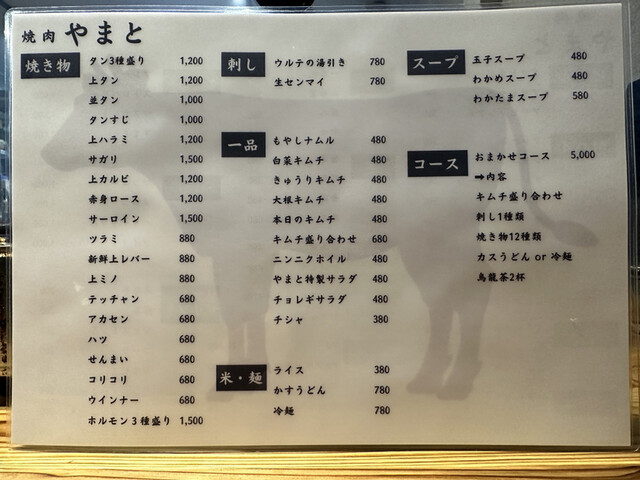 焼肉 やまと
焼き物
タン3種盛り 1,200
上タン 1,200
並タン 1,000
タンすじ 1,000
上ハラミ 1,200
サガリ 1,500
上カルビ 1,200
赤身ロース 1,200
サーロイン 1,500
ツラミ 880
新鮮上レバー 880
上ミノ 880
テッチャン 680
アカセン 680
ハツ 680
せんまい 680
コリコリ 680
ウインナー 680
ホルモン3種盛り 1,500
刺し
ウルテの湯引き 780
生センマイ 780
一品
もやしナムル 480
白菜キムチ 480
きゅうりキムチ 480
大根キムチ 480
本日のキムチ 480
キムチ盛り合わせ 680
ニンニクホイル 480
やまと特製サラダ 480
チョレギサラダ 480
チシャ 380
米・麺
ライス 380
かすうどん 780
冷麺 780
スープ
玉子スープ 480
わかめスープ 480
わかたまスープ 580
コース
おまかせコース 5,000
➡内容
キムチ盛り合わせ
刺し1種類
焼き物12種類
カスうどん or 冷麺
烏龍茶2杯